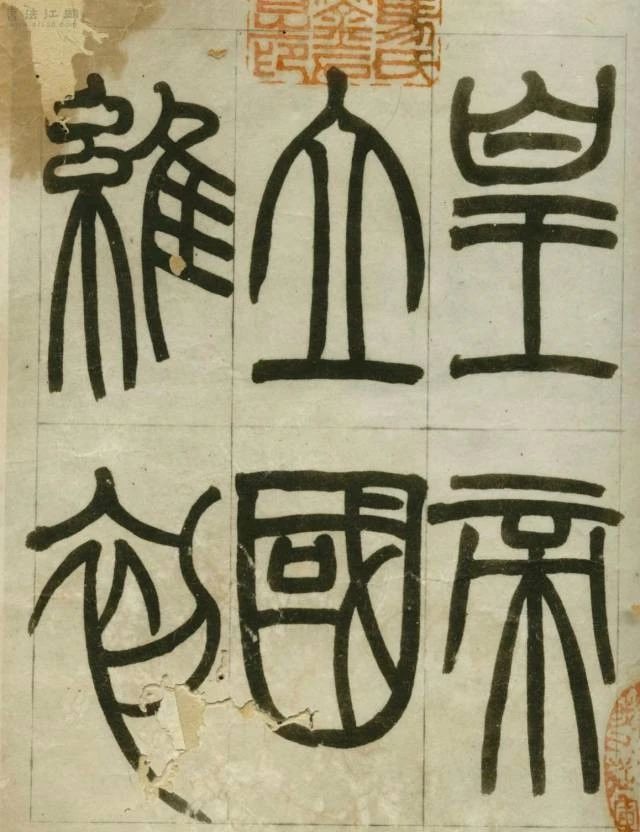 皇帝
立國
維初